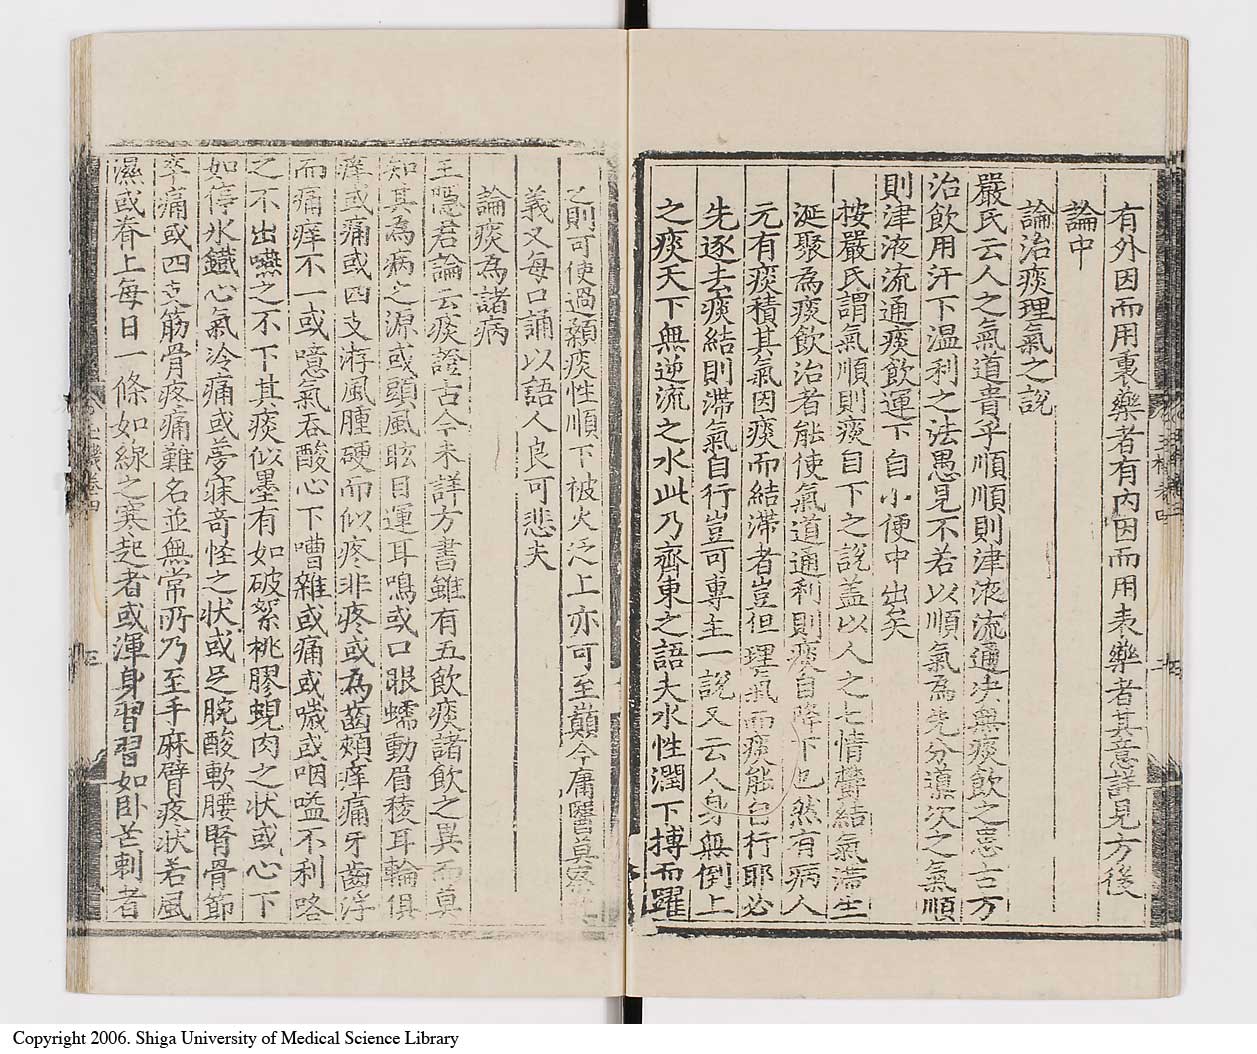 有外因而用裏藥者有内因而用表藥者其意詳見方後
論中
論治痰理氣之説
嚴氏云人之氣道貴乎順順則津液流通决無痰飲之患古方
治飲用汗下温利之法愚見不若以順氣為先分導次之氣順
則津液流通痰飲運下自小便中出矣
按嚴氏謂氣順則痰自下之説盖以人之七情欝結氣滯生
涎聚為痰飲治者能使氣道通利則痰自降下也然有病人
元有痰積其氣因痰而結滯者豈但理氣而痰能自行耶必
先逐去痰結則滯氣自行豈可專主一説又云人身無倒上
之痰天下無逆流之水此乃齊東之語夫水性潤下搏而躍
之則可使過顙痰性順下被火泛上亦可至巔今庸醫莫察
義又每口誦以語人良可悲夫
論痰為諸病
王隱君論云痰證古今未詳方書雖有五飲痰諸飲之異而莫
知其為病之源或頭風眩目運耳鳴或口眼蠕動眉稜耳輪俱
痒或痛或四支游風腫硬而似疼非疼或為齒頰痒痛牙齒浮
而痛痒不一或噫氣吞酸心下嘈雜或痛或噦或咽嗌不利咯
之不出嚥之不下其痰似墨有如破絮桃膠蜆肉之状或心下
如停氷鐵心氣冷痛或夢寐竒怪之状或足腕酸軟腰腎骨節
卒痛或四支筋骨疼痛難名並無常所乃至手麻臂疼状若風
濕或脊上每日一條如線之寒起者或渾身習習如卧芒刺者